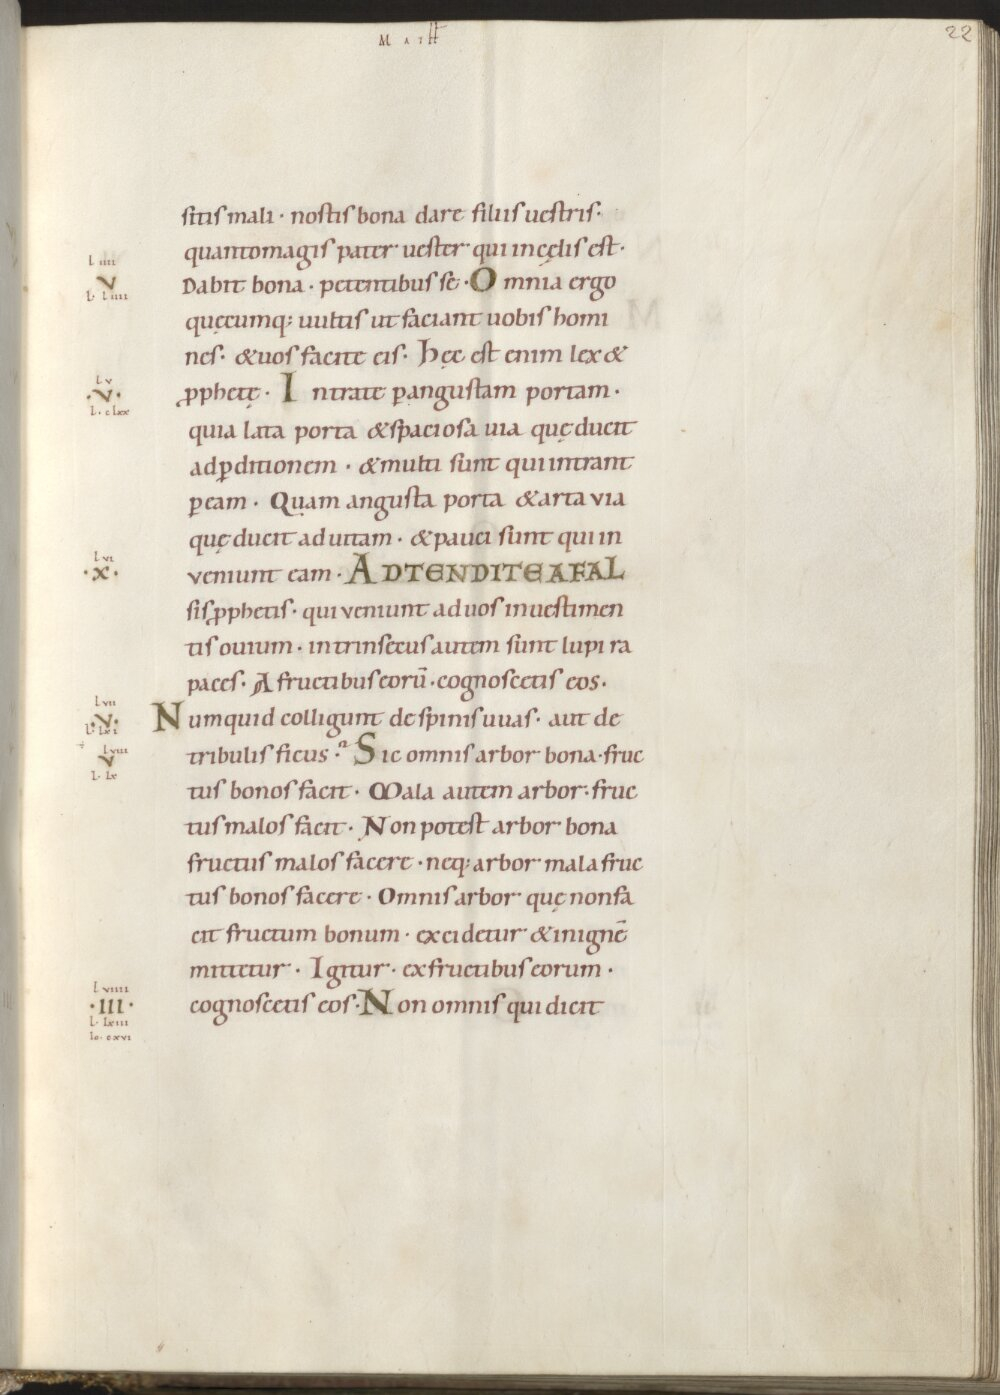 MATH
22
sitis mali · nostis bona dare filiis uestris·
quantomagis pater uester qui in cęlis est·
L IIII
V
L· L IIII
Dabit bona · petentibus se · Omnia ergo
quęcumq; uultis ut faciant uobis homi
nes· & uos facite eis· Hęc est enim lex &
L V
· V ·
L· C LXX
ꝓphetę · Intrate ꝑ angustam portam ·
quia lata porta & spaciosa uia quę ducit
ad ꝑditionem · & multi sunt qui intrant
ꝑ eam · Quam angusta porta & arta via
quę ducit ad uitam · & pauci sunt qui in
L VI
· X ·
veniunt eam · ADTENDITE A FAL
sis ꝓphetis · qui veniunt ad uos in uestimen
tis ouium · intrinsecus autem sunt lupi ra
paces· A fructibus eorū · cognoscetis eos·
L VII
· V ·
L· LXI
Numquid colligunt de spinis uuas· aut de
L VIII
V
L· LX
tribulis ficus · Sic omnis arbor bona · fruc
tus bonos facit · Mala autem arbor · fruc
tus malos facit · Non potest arbor bona
fructus malos facere · neq; arbor mala fruc
tus bonos facere · Omnis arbor quę non fa
cit fructum bonum · excidetur & in ignē
mittetur · Igitur · ex fructibus eorum ·
L VIIII
· III ·
L· LXIII
Io· CXVI
cognoscetis eos · Non omnis qui dicit